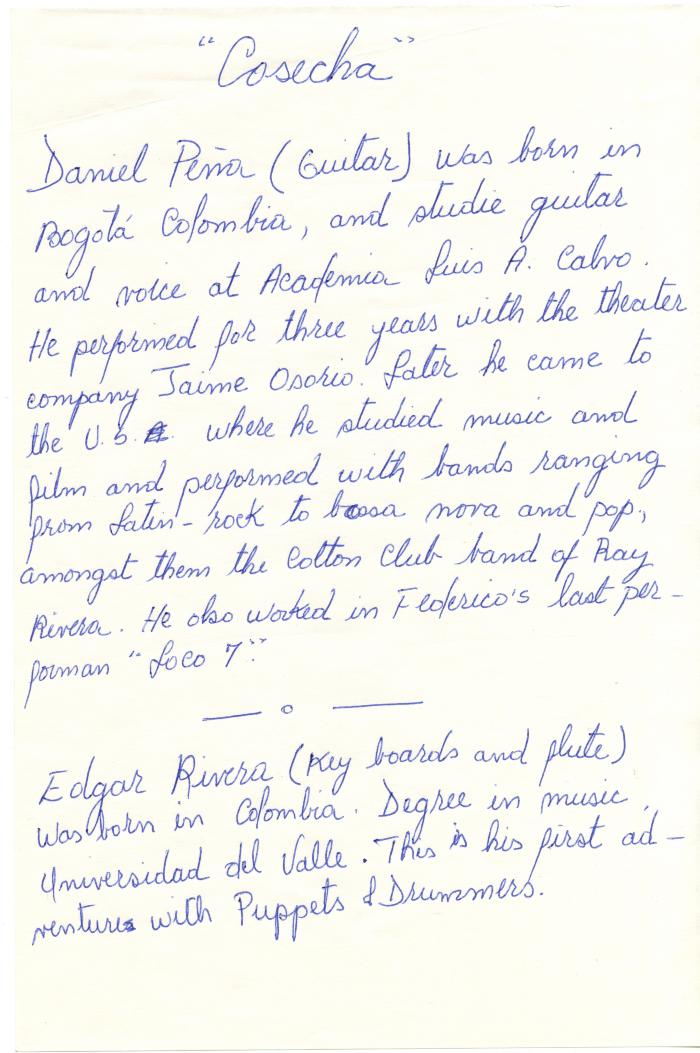 "Cosecha"
Daniel Peña (Guitar) was born in
Bogotá Colombia, and studie guitar
and voice at Academia Luis A. Calvo.
He performed for three years with the theater
company Jaime Osorio. Later he came to
the U.S.A. where he studied music and
film and performed with bands ranging
from Latin-rock to bossa nova and pop,
amongst them the Cotton Club band of Ray
Rivera. He also worked in Federico's last per-
forman "Loco 7".
— o —
Edgar Rivera (Key boards and flute)
was born in Colombia. Degree in music,
Universidad del Valle. This is his first ad-
venture with Puppets & Drummers.